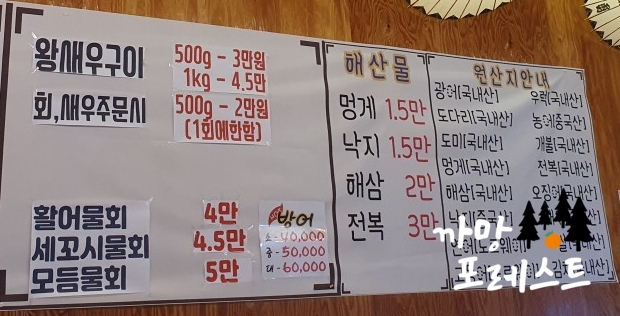 왕새우구이 500g - 3만원
1kg - 4.5만
회,새우주문시 500g - 2만원
(1회에한함)
활어물회 4만
세꼬시물회 4.5만
모듬물회 5만
방어
소 - 40,000
중 - 50,000
대 - 60,000
해산물
멍게 1.5만
낙지 1.5만
해삼 2만
전복 3만
원산지안내
광어[국내산] 우럭[국내산]
도다리[국내산] 농어[중국산]
도미[국내산] 개불[국내산]
멍게[국내산] 전복[국내산]
해삼[국내산]
까망
포레스트